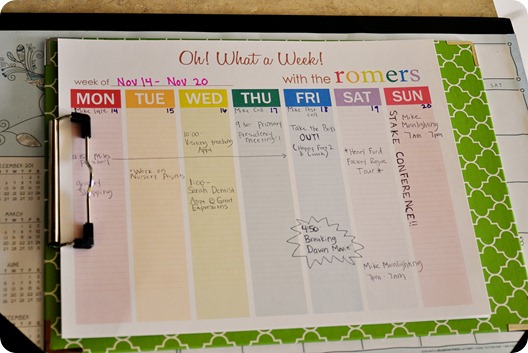 Oh! What a Week!
week of Nov 14 - Nov 20 with the romers
MON TUE WED THU FRI SAT SUN
Mike Late 14
Shopping
15
*Work on
Nursery Projects
16
10:00
Visiting teaching
Appt
1:00 -
Sarah Dentist
Appt @ Great
Expressions
Mike Call 17
9:30 Primary
Presidency
Meeting!
18
Take the Boys
OUT!
(Happy Feet 2
& Lunch)
4:50
Breaking
Dawn Movie
19
*Henry Ford
Factory Rouge
Tour *
Mike Moonlighting
7pm - 7am
20
Mike
Moonlighting
7am - 7pm
STAKE CONFERENCE!!
DECEMBER 2011
MARCH
JUNE